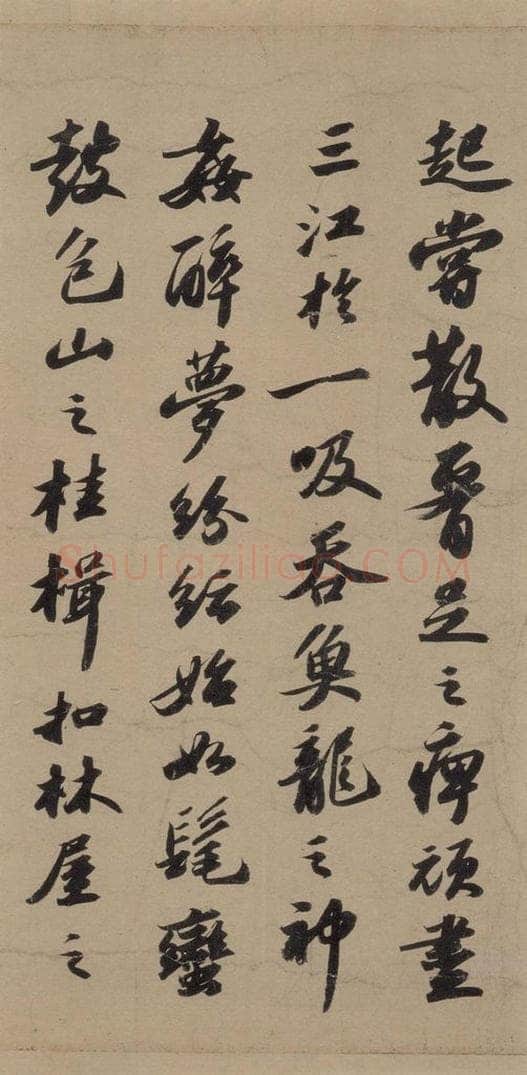 起嘗散腰足之痺頑盡
三江於一吸吞魚龍之神
姦醉夢紛紜始如髦蠻
鼓包山之桂楫扣林屋之
Shufaziliao.COM